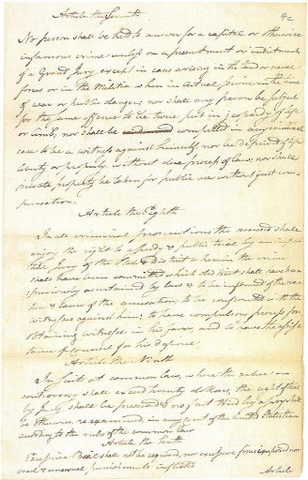 Article the Seventh
No person shall be held to answer for a capital or otherwise
infamous crime unless on a presentment or indictment
of a Grand Jury, except in cases arising in the land or naval
forces or in the Militia when in actual service in the time
of war or public danger; nor shall any person be subject
for the same offence to be twice put in jeopardy of life
or limb; nor shall be compelled in any criminal
case to be a witness against himself, nor be deprived of life
liberty or property without due process of law; nor shall
private property be taken for public use without just com-
pensation.
Article the Eighth
In all criminal prosecutions the accused shall
enjoy the right to a speedy & public trial by an impar
tial Jury of the State & district wherein the crime
shall have been committed which district shall have been
previously ascertained by law & to be informed of the na
ture & cause of the accusation; to be confronted with the
witnesses against him; to have compulsory process for
obtaining witnesses in his favor, and to have the assis
tance of counsel for his defence.
Article the Ninth
In suits at common law, where the value in
controversy shall exceed twenty dollars, the right of trial
by Jury shall be preserved & no fact tried by a jury shall
be otherwise re-examined in any court of the United States than
according to the rules of the common law
Article the Tenth
Excessive Bail shall not be required, nor excessive fines imposed nor
cruel & unusual punishments inflicted
Article